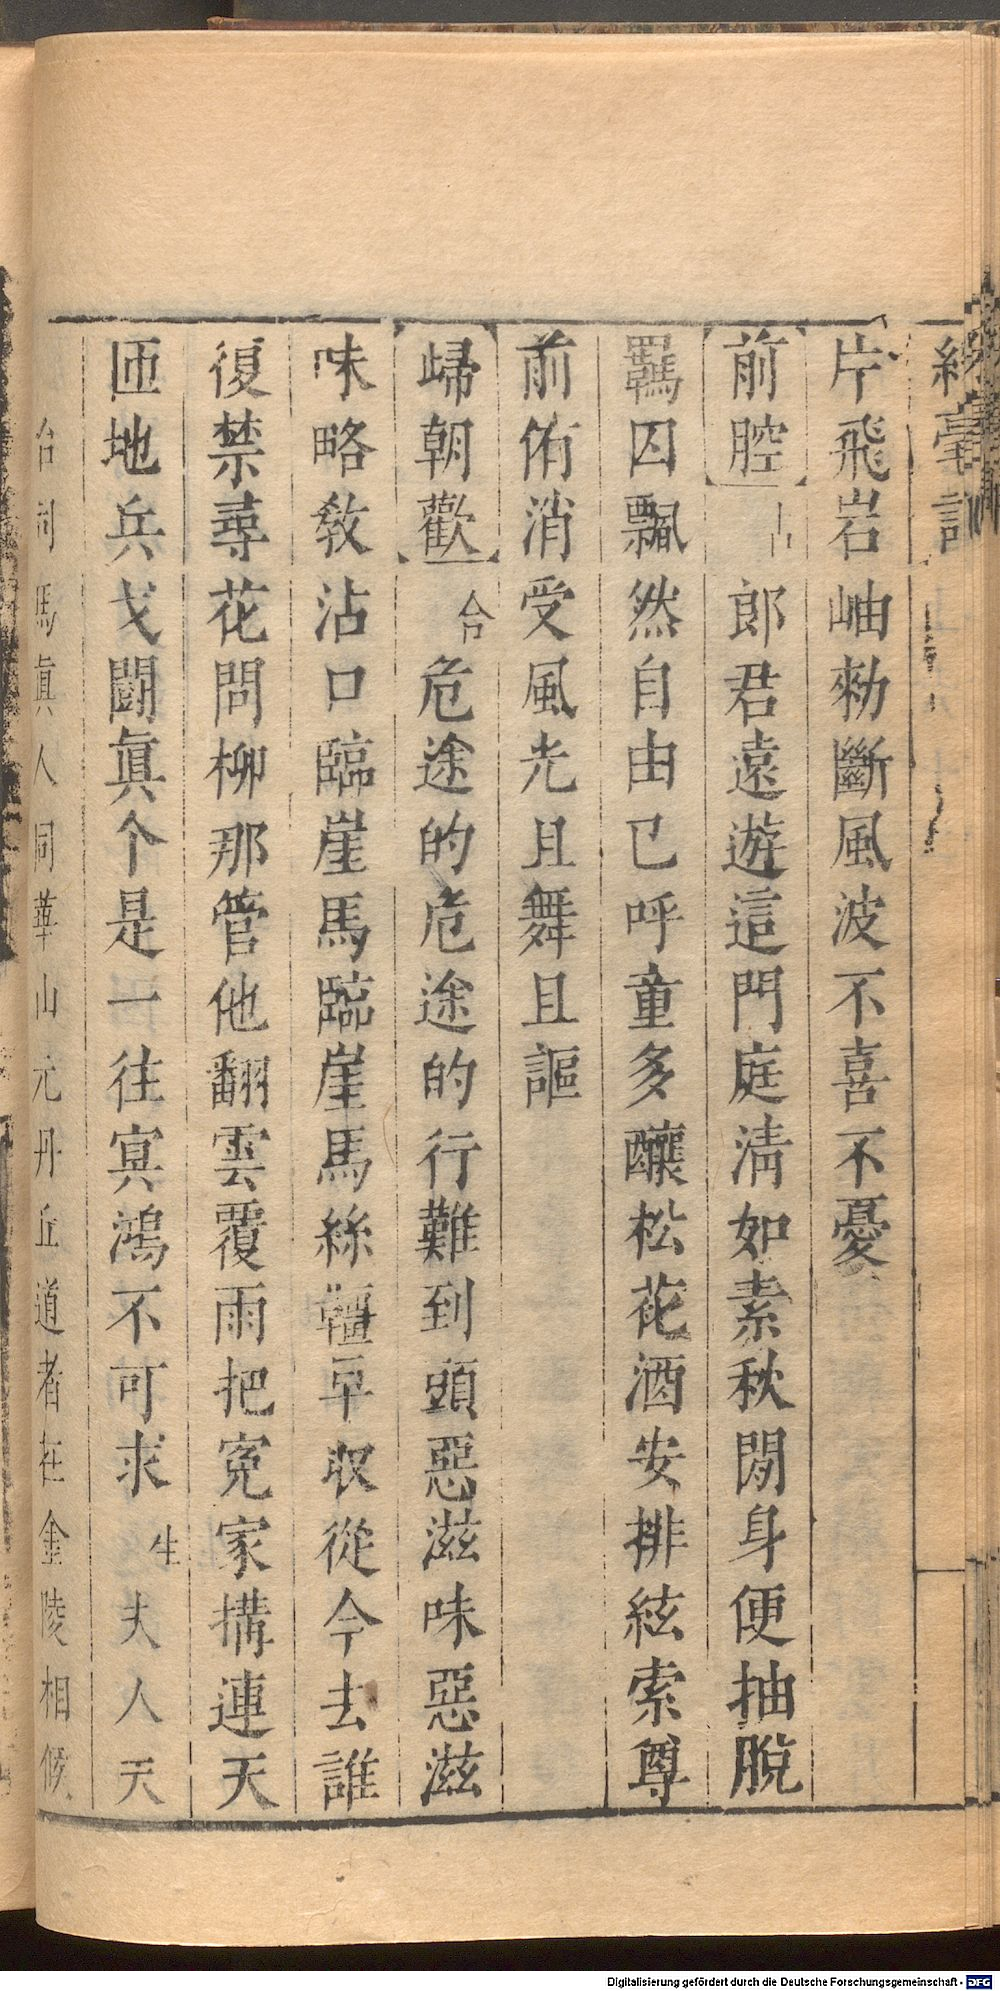 綵毫記
片飛岩岫勑斷風波不喜不憂
前腔 占 郎君遠遊這門庭淸如素秋閒身便抽脫
羈囚飄然自由已呼童多釀松花酒安排絃索尊
前侑消受風光且舞且謳
歸朝歡 合 危途的危途的行難到頭惡滋味惡滋
味略敎沾口臨崖馬臨崖馬絲韁早収從今去誰
復禁尋花問柳那管他翻雲覆雨把寃家搆連天
匝地兵戈鬬眞个是一往寞鴻不可求 生 夫人天
台司馬眞人同華山元丹丘道者在金陵相候
Digitalisierung gefördert durch die Deutsche Forschungsgemeinschaft - DFG